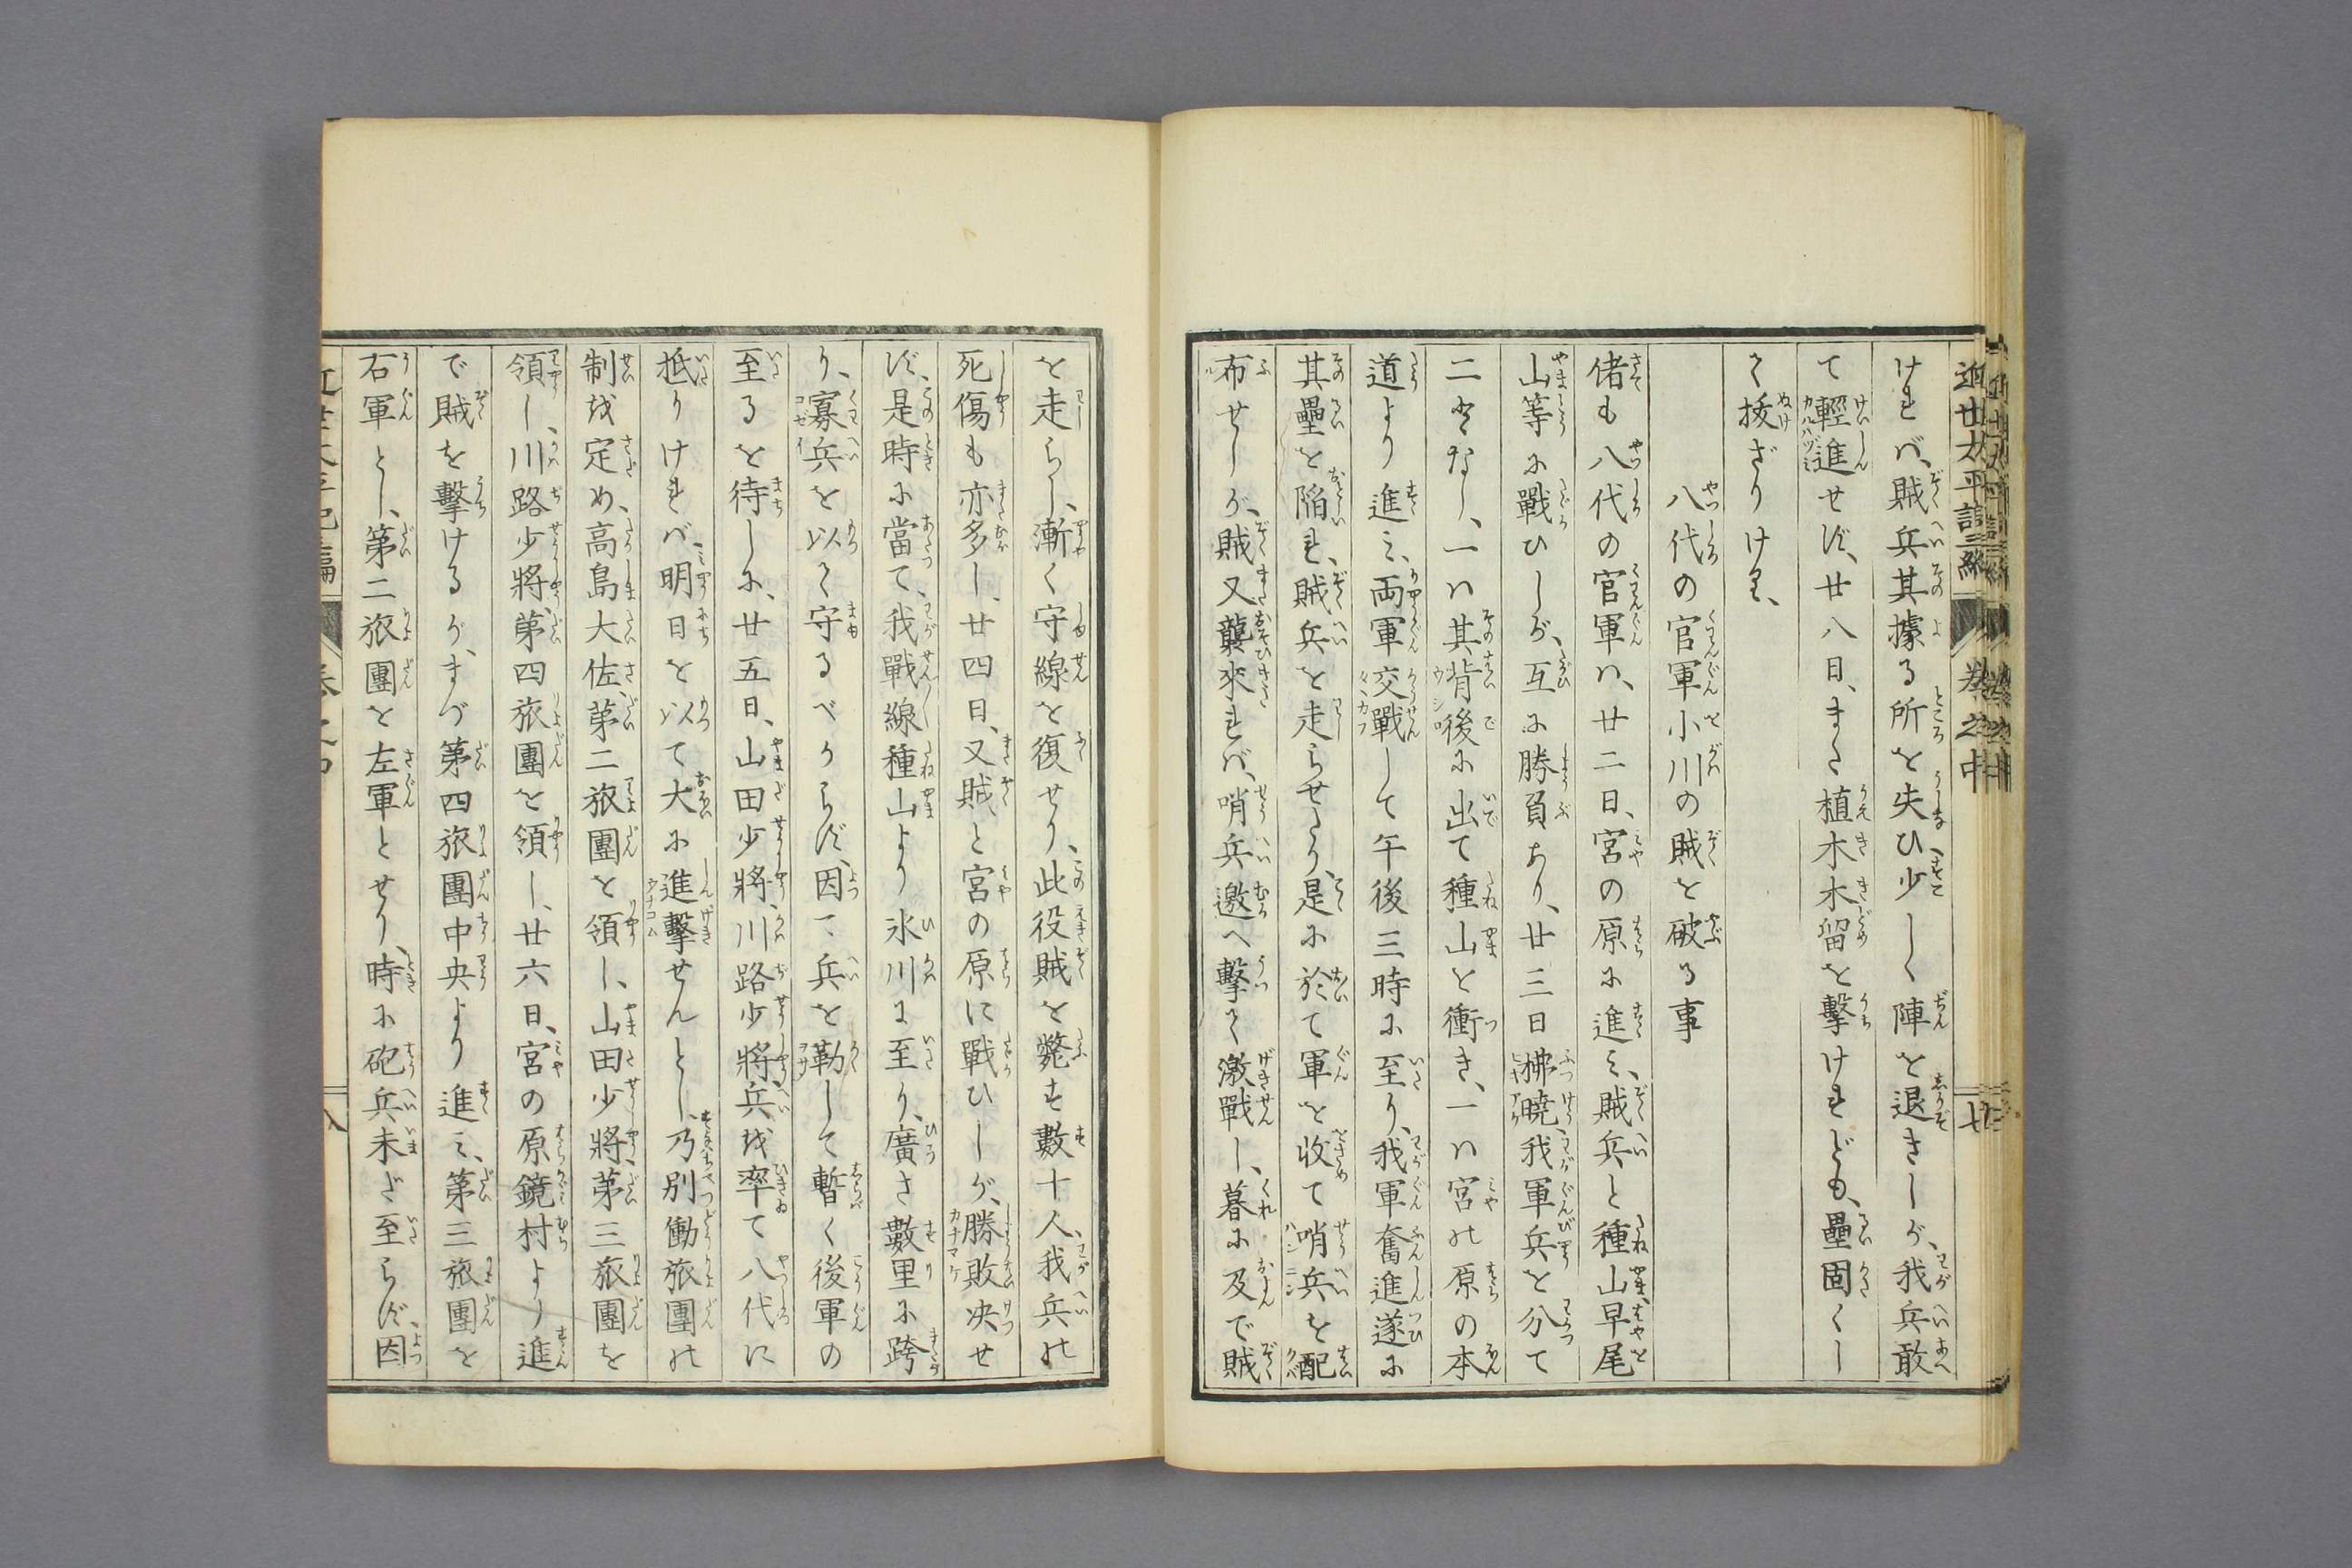 けれバ、賊兵其據る所を失ひ、少しく陣を退きしが、我兵敢
て輕進せず、廿八日、また植木木留を擊けれども、壘固くし
て拔ざりけり、
八代の官軍小川の賊を破る事
偖も八代の官軍ハ、廿二日、宮の原に進ミ、賊兵と種山早尾
山等に戰ひしが、互に勝負あり、廿三日拂曉、我軍兵を分て
二となし、一ハ其背後に出て種山を衝き、一ハ宮の原の本
道より進ミ、両軍交戰して午後三時に至り、我軍奮進遂に
其壘を陷れ、賊兵を走らせたり、是に於て軍を收て哨兵を配
布せしが、賊又襲來れバ、哨兵邀へ擊て激戰し、暮に及で賊
を走らし、漸く守線を復せり、此役賊を斃す數十人、我兵の
死傷も亦多し、廿四日、又賊と宮の原に戰ひしが、勝敗决せ
ず、是時に當て、我戰線種山より氷川に至り、廣さ數里に跨
り、寡兵を以て守るべからず、因て兵を勒して暫く後軍の
至るを待しに、廿五日、山田少將、川路少將、兵を率て八代に
抵りけれバ、明日を以て大に進擊せんとし、乃別働旅團の
制を定め、高島大佐、第二旅團を領し、山田少將、第三旅團を
領し、川路少將、第四旅團を領し、廿六日、宮の原鏡村より進
で賊を擊けるが、まづ第四旅團中央より進ミ、第三旅團を
右軍とし、第二旅團を左軍とせり、時に砲兵未だ至らず、因